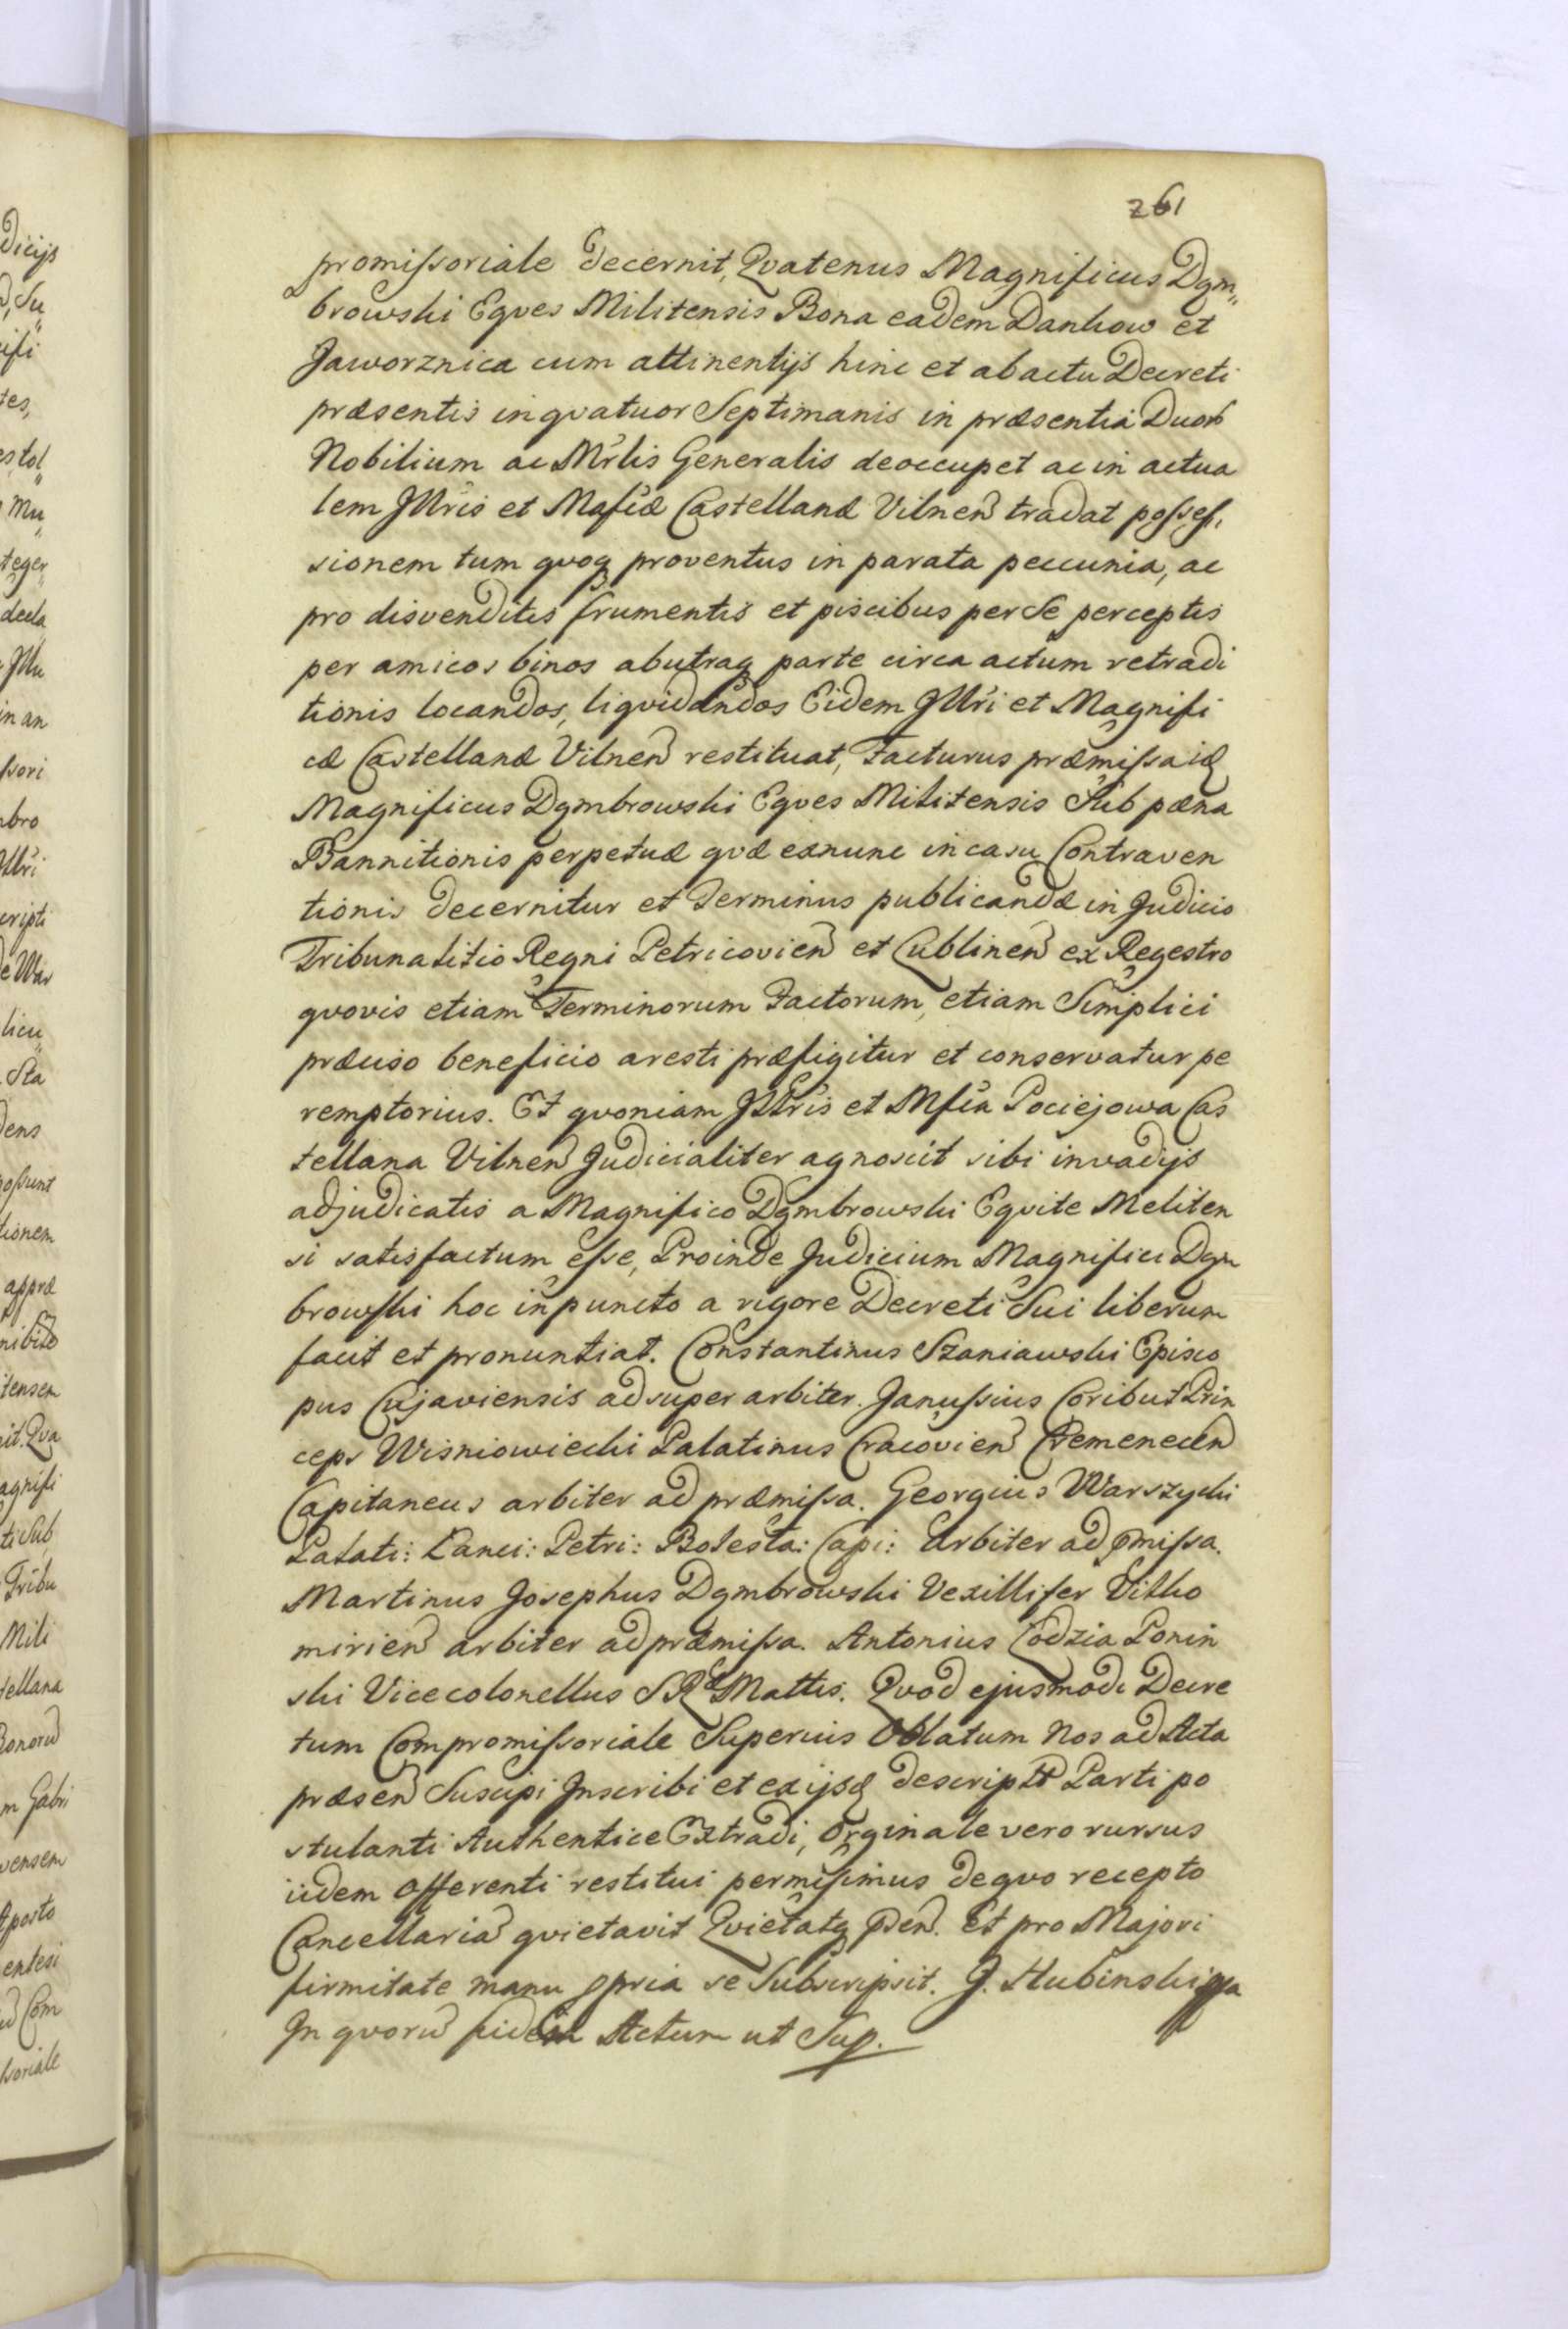 261
promissoriale decernit, Qvatenus Magnificus Dąm„
browski Eqves Militensis Bona eadem Dankow et
Jaworznica cum attinentijs hinc et ab actu Decreti
præsentis in qvatuor Septimanis in præsentia Duor
Nobilium ac Mrlis Generalis deoccupet ac in actua
lem Jllris et Mafcæ Castellanæ Vilnen tradat posses„
sionem tum qvoq proventus in parata peccunia, ac
pro disvenditis frumentis et piscibus per Se perceptis
per amicos binos ab utraq parte circa actum retradi
tionis locandos, liqvidandos Eidem Jllri et Magnifi
cæ Castellanæ Vilnen restituat, Facturus præmissa id
Magnificus Dąmbrowski Eqves Militensis Sub pæna
Bannitionis perpetuæ qvæ exnunc in casu Contraven
tionis decernitur et Terminus publicandæ in Judicio
Tribunalitio Regni Petricovien et Lublinen ex Regestro
qvovis etiam Terminorum Factorum, etiam Simplici
præciso beneficio aresti præfigitur et conservatur pe
remptorius. Et qvoniam Jllris et Mfca Pociejowa Cas
tellana Vilnen Judicialiter agnoscit sibi in vadijs
adjudicatis a Magnifico Dąmbrowski Eqvite Meliten
si satisfactum esse, Proinde Judicium Magnifici Dąm
browski hoc in puncto a rigore Decreti Sui liberum
facit et pronuntiat. Constantinus Szaniawski Episco
pus Cujaviensis ad super arbiter. Janussius Coribut Prin
ceps Wisniowiecki Palatinus Cracovien Cremenecen
Capitaneus arbiter ad præmissa. Georgius Warszycki
Palati: Lanci: Petri: Bolesta: Capi: Arbiter ad pmissa.
Martinus Josephus Dąmbrowski Vexillifer Vitko
mirien arbiter ad præmissa. Antonius Lodzia Ponin
ski Vicecolonellus S R Mattis. Qvod ejusmodi Decre
tum Compromissoriale Superius Oblatum Nos ad Acta
præsen Suscipi Jnscribi et ex ijsd descriptt Parti po
stulanti Authentice Extradi, Orginale vero rursus
iidem Offerenti restitui permisimus de qvo recepto
Cancellaria qvietavit Qvietatq pnen. Et pro Majori
firmitate manu ppria se Subscripsit. J. Stubinski mpa
Jn qvoru fidem Actum ut Sup.